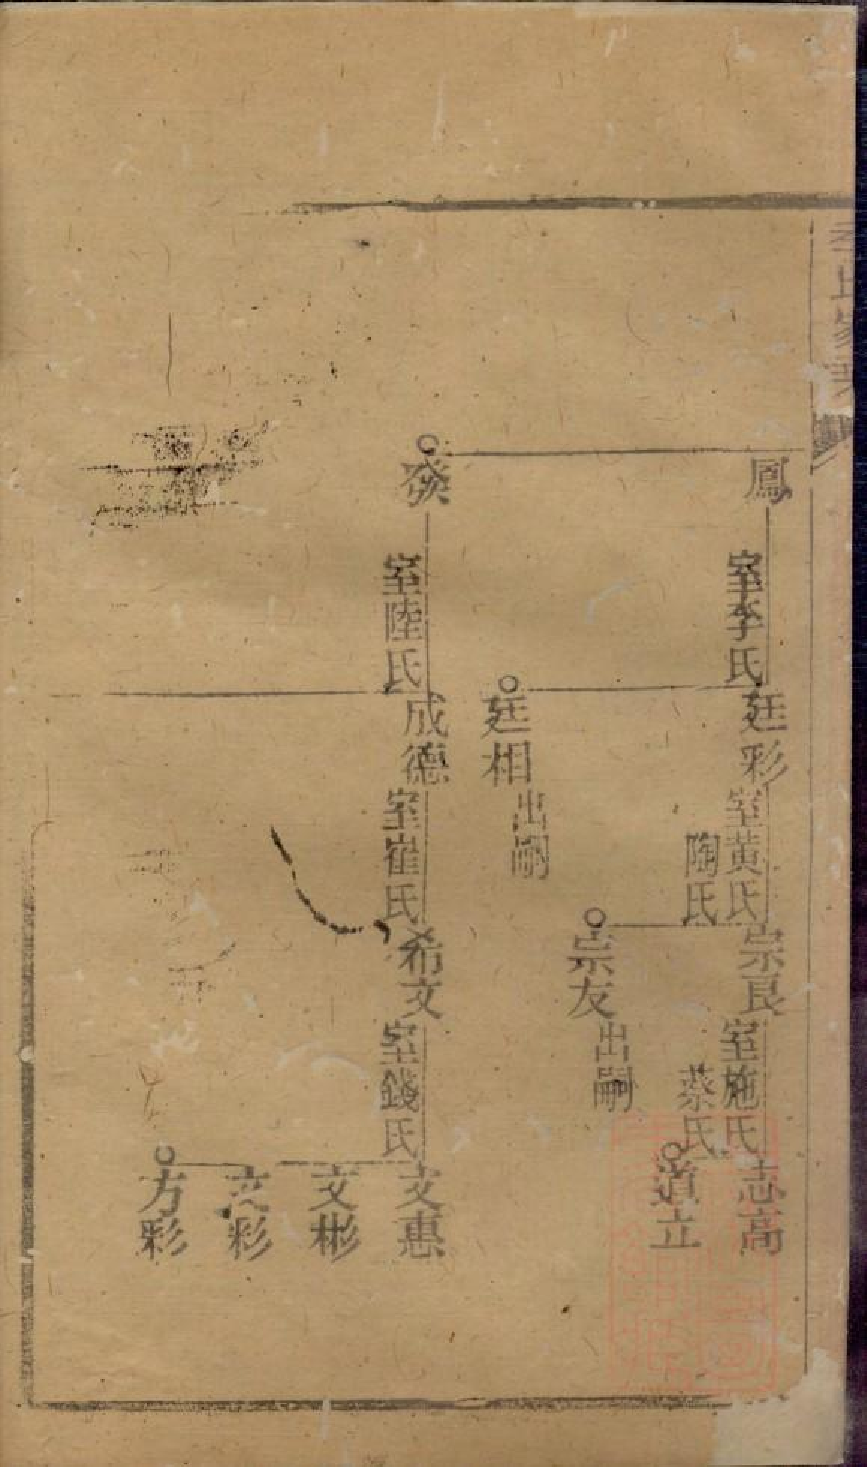 鳳
室李氏
廷彩
室黃氏
陶氏
宗良
室施氏
蔡氏
志高
道立
宗友
出嗣
廷相
出嗣
發
室陸氏
成德
室崔氏
希文
室錢氏
文惠
文彬
文彩
方彩